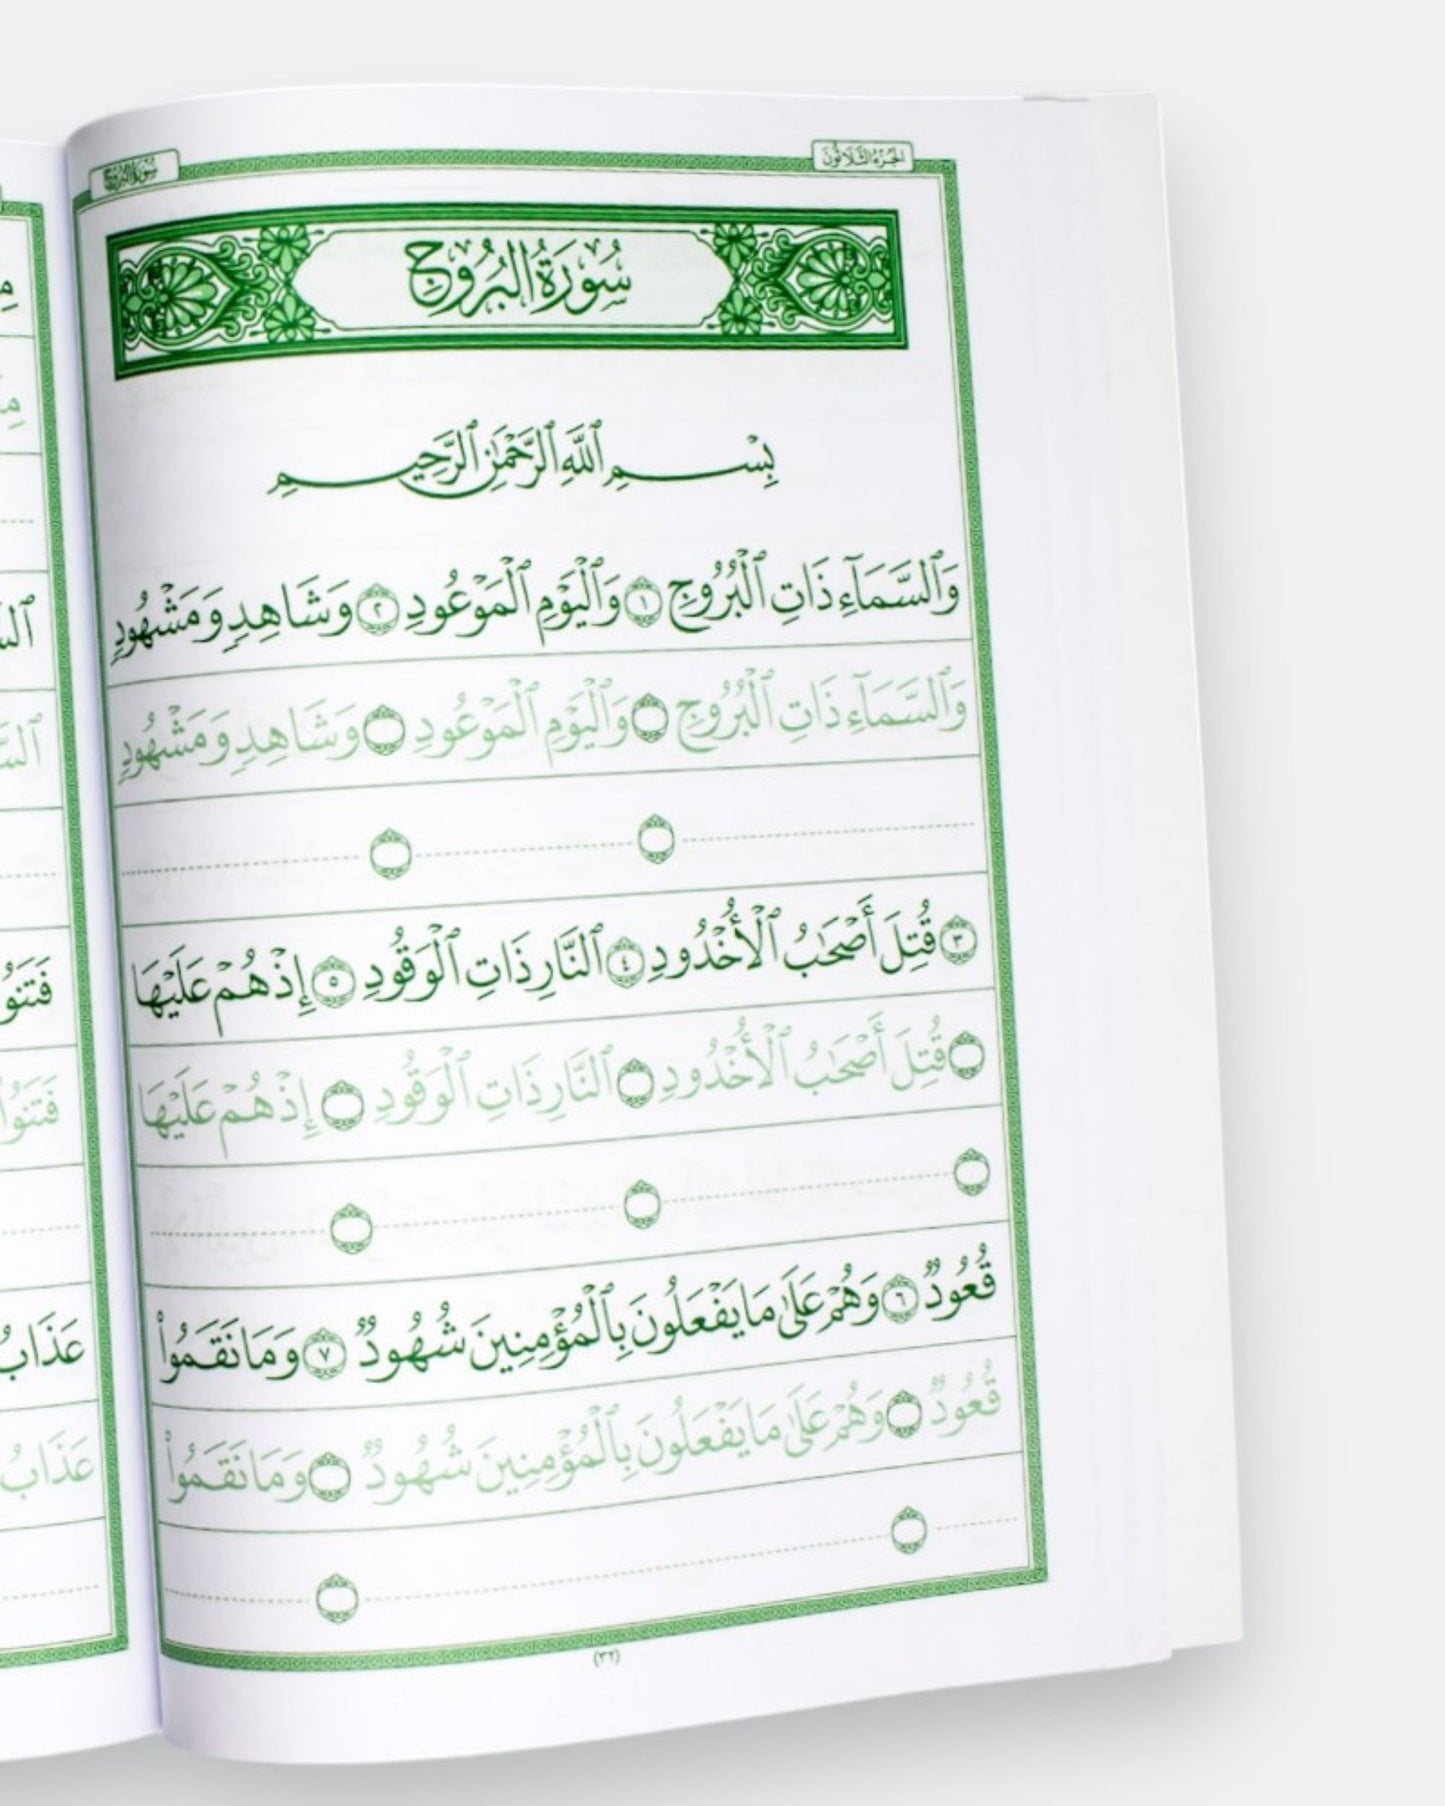 الجزء الثلاثون
سورة البروج
سُورَةُ الْبُرُوجِ
بِسْمِ ٱللَّهِ ٱلرَّحْمَٰنِ ٱلرَّحِيمِ
وَٱلسَّمَآءِ ذَاتِ ٱلْبُرُوجِ ١ وَٱلْيَوْمِ ٱلْمَوْعُودِ ٢ وَشَاهِدٍ وَمَشْهُودٍ
وَٱلسَّمَآءِ ذَاتِ ٱلْبُرُوجِ وَٱلْيَوْمِ ٱلْمَوْعُودِ وَشَاهِدٍ وَمَشْهُودٍ
٣ قُتِلَ أَصْحَٰبُ ٱلْأُخْدُودِ ٤ ٱلنَّارِ ذَاتِ ٱلْوَقُودِ ٥ إِذْ هُمْ عَلَيْهَا
قُتِلَ أَصْحَٰبُ ٱلْأُخْدُودِ ٱلنَّارِ ذَاتِ ٱلْوَقُودِ إِذْ هُمْ عَلَيْهَا
قُعُودٌ ٦ وَهُمْ عَلَىٰ مَا يَفْعَلُونَ بِٱلْمُؤْمِنِينَ شُهُودٌ ٧ وَمَا نَقَمُوا۟
قُعُودٌ وَهُمْ عَلَىٰ مَا يَفْعَلُونَ بِٱلْمُؤْمِنِينَ شُهُودٌ وَمَا نَقَمُوا۟
(٣٢)
فَتَنُوا
فَتَنُوا
عَذَابُ
عَذَابُ